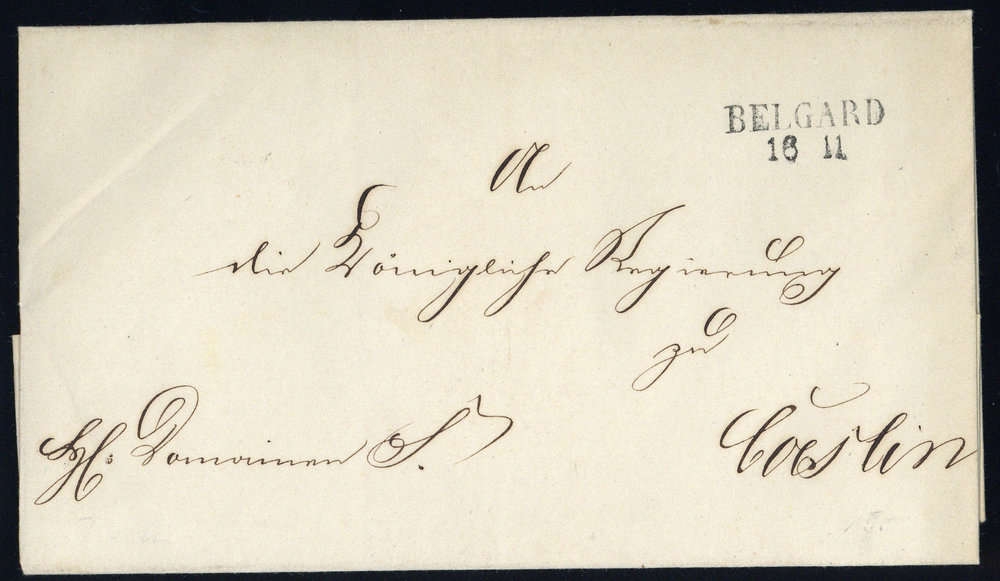 BELGARD
16 11
An
die Königliche Regierung
zu
Coeslin
Domainen S.